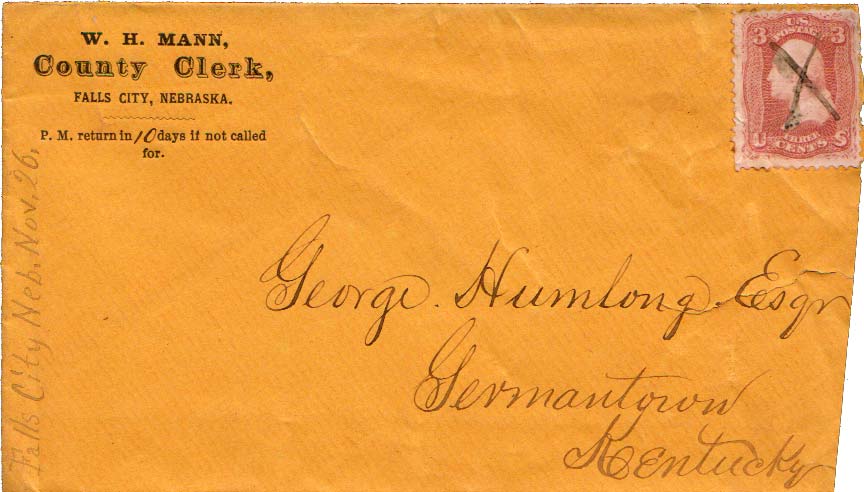 W. H. MANN,
County Clerk,
FALLS CITY, NEBRASKA.
P. M. return in 10 days if not called
for.
3 U.S. 3
POSTAGE
U THREE S
CENTS
Falls City Neb. Nov. 26.
George. Humlong. Esqr
Germantown
Kentucky